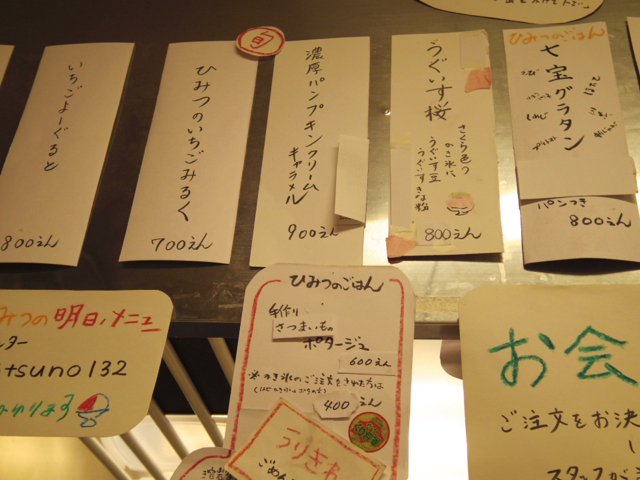 いちごよーぐると
800えん
ひみつのいちごみるく
700えん
旬
濃厚パンプキンクリーム
キャラメル
900えん
うぐいす桜
さくら色の
かき氷に
うぐいす豆
うぐいすきな粉
800えん
ひみつのごはん
七宝グラタン
えび
しめじ
ほたて
パンつき
800えん
みつの明日メニュー
ター
itsuno132
ひみつのごはん
手作り
さつまいもの
ポタージュ
600えん
※かき氷のご注文をされた方は
400えん
うりきれ
ごめん
お会
ご注文をお決
スタッフが